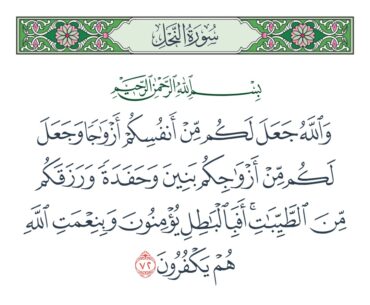 سُورَةُ النَّحْلِ
بِسْمِ اللَّهِ الرَّحْمَٰنِ الرَّحِيمِ
وَاللَّهُ جَعَلَ لَكُم مِّنْ أَنفُسِكُمْ أَزْوَاجًا وَجَعَلَ
لَكُم مِّنْ أَزْوَاجِكُم بَنِينَ وَحَفَدَةً وَرَزَقَكُم
مِّنَ الطَّيِّبَاتِ ۚ أَفَبِالْبَاطِلِ يُؤْمِنُونَ وَبِنِعْمَتِ اللَّهِ
هُمْ يَكْفُرُونَ ٧٢